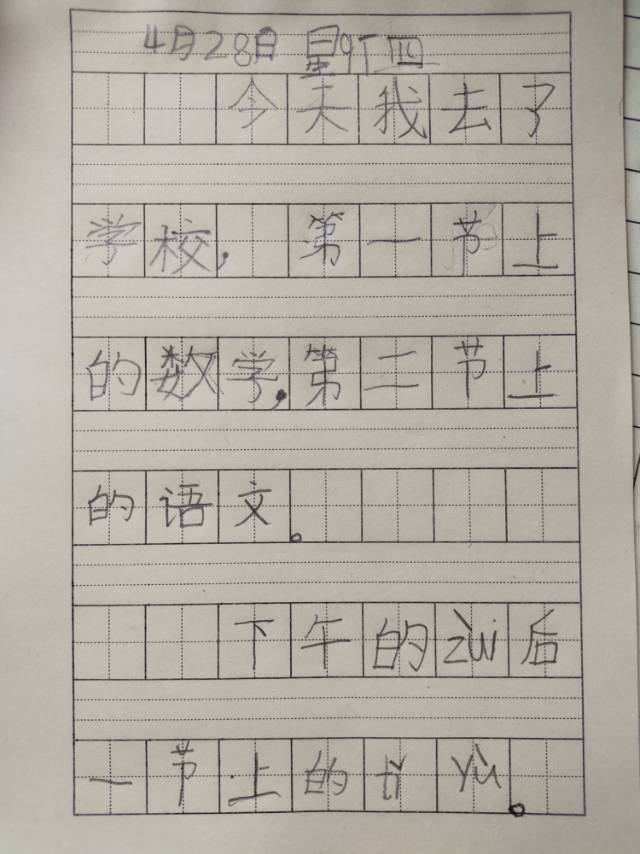 4月28日 星期四
今天我去了
学校，第一节上
的数学，第二节上
的语文。
下午的zùi后
一节上的tǐ yù。